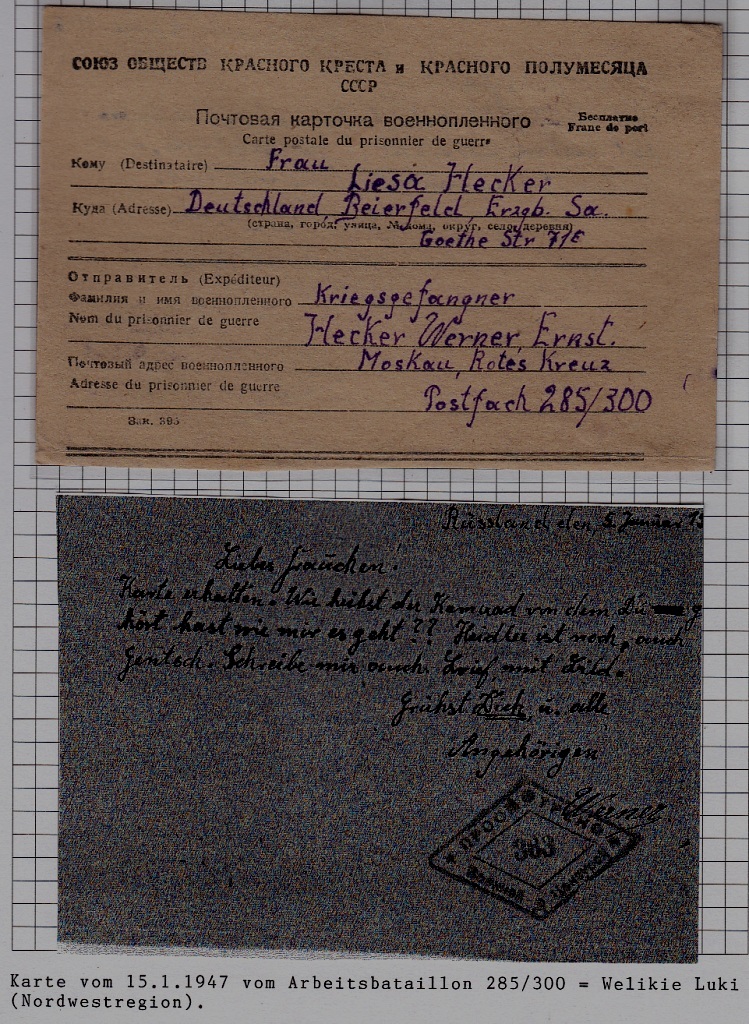 СОЮЗ ОБЩЕСТВ КРАСНОГО КРЕСТА и КРАСНОГО ПОЛУМЕСЯЦА
СССР
Почтовая карточка военнопленного
Бесплатно
Carte postale du prisonnier de guerre
Franc de port
Кому (Destinataire) Frau
Liesa Hecker
Куда (Adresse) Deutschland, Beierfeld, Erzgb. Sa.
(страна, город, улица, № дома, округ, село, деревня)
Goethe Str 71E
Отправитель (Expéditeur)
Фамилия и имя военнопленного Kriegsgefangner
Nom du prisonnier de guerre
Hecker Werner, Ernst.
Почтовый адрес военнопленного Moskau, Rotes Kreuz
Adresse du prisonnier de guerre
Postfach 285/300
Зак. 395
Russland den 5. Januar
Liebes Frauchen!
Karte erhalten. Wie heißst der Kamrad von dem Du
hört hast wie mir es geht?? Heidler ist noch, auch
Gentsch. Schreibe mir auch Brief mit Bild.
Grühst Dich u. alle
Angehörigen
Werner
ПРОСМОТРЕНО
383
Военной Цензурой
Karte vom 15.1.1947 vom Arbeitsbataillon 285/300 = Welikie Luki
(Nordwestregion).